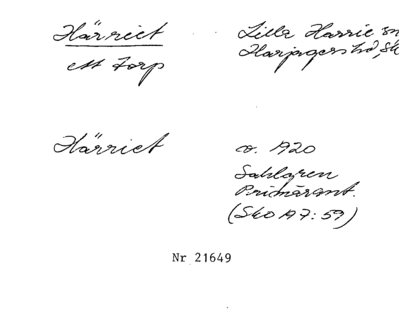 Härriet Lilla Harrie sn
ett torp Harjagers hd, Sk
Härriet o. 1920
Sahlgren
Primäruppt.
(Sko A 7: 59)
Nr 21649